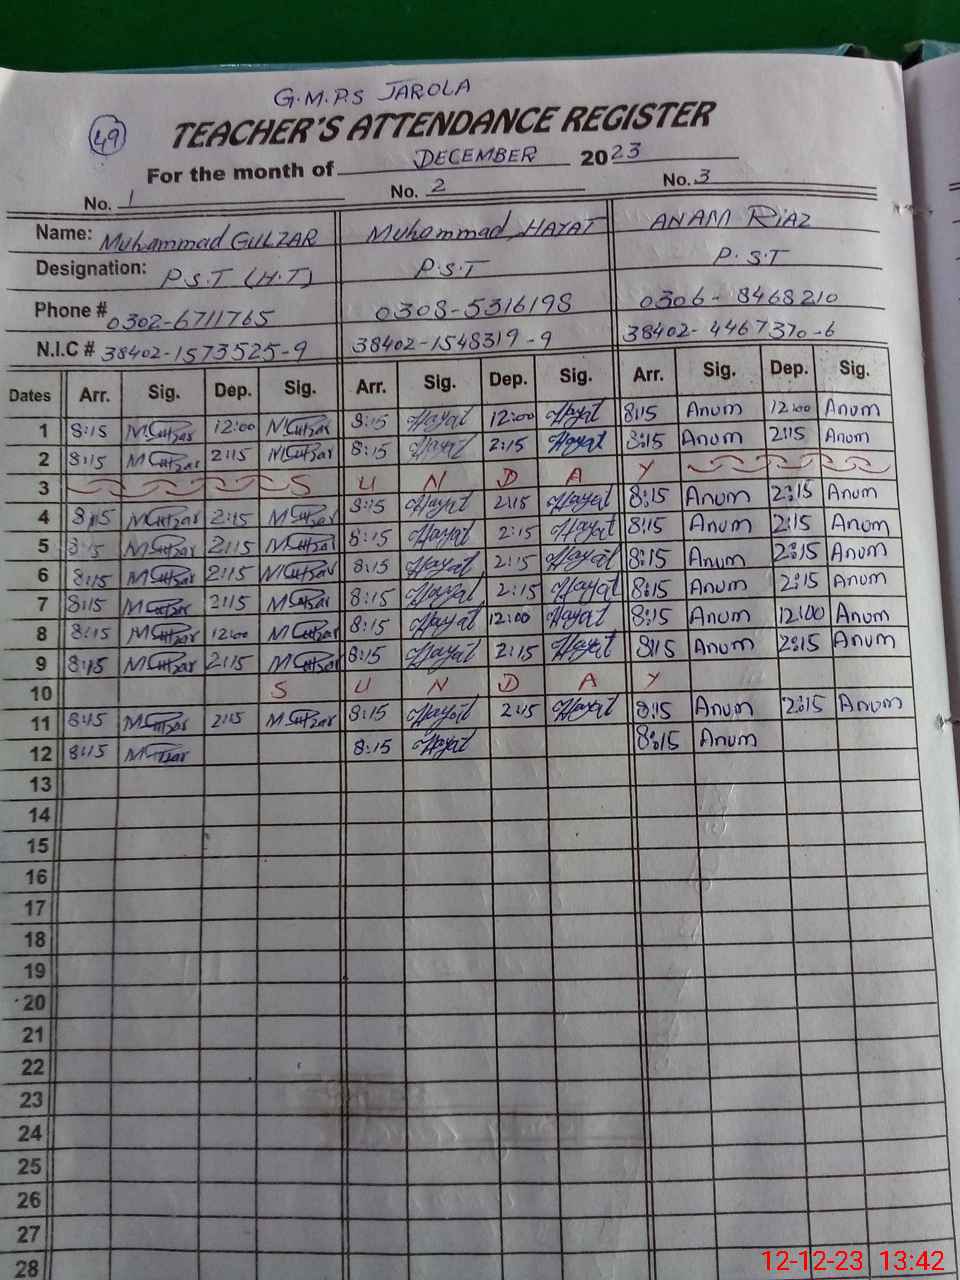 G.M.P.S JAROLA
49
TEACHER'S ATTENDANCE REGISTER
For the month of DECEMBER 2023
No. 1 No. 2 No. 3
Name: Muhammad GULZAR Muhammad HAYAT ANAM RIAZ
Designation: P.S.T (H.T) P.S.T P.S.T
Phone # 0302-6711765 0308-5316198 0306-8468210
N.I.C # 38402-1573525-9 38402-1548319-9 38402-4467370-6
Dates Arr. Sig. Dep. Sig. Arr. Sig. Dep. Sig. Arr. Sig. Dep. Sig.
1 8:15 MGulzar 12:00 MGulzar 8:15 Hayat 12:00 Hayat 8:15 Anum 12:00 Anum
2 8:15 MGulzar 2:15 MGulzar 8:15 Hayat 2:15 Hayat 8:15 Anum 2:15 Anum
3 S U N D A Y
4 8:15 MGulzar 2:15 MGulzar 8:15 Hayat 2:15 Hayat 8:15 Anum 2:15 Anum
5 8:15 MGulzar 2:15 MGulzar 8:15 Hayat 2:15 Hayat 8:15 Anum 2:15 Anum
6 8:15 MGulzar 2:15 MGulzar 8:15 Hayat 2:15 Hayat 8:15 Anum 2:15 Anum
7 8:15 MGulzar 2:15 MGulzar 8:15 Hayat 2:15 Hayat 8:15 Anum 2:15 Anum
8 8:15 MGulzar 12:00 MGulzar 8:15 Hayat 12:00 Hayat 8:15 Anum 12:00 Anum
9 8:15 MGulzar 2:15 MGulzar 8:15 Hayat 2:15 Hayat 8:15 Anum 2:15 Anum
10 S U N D A Y
11 8:15 MGulzar 2:15 MGulzar 8:15 Hayat 2:15 Hayat 8:15 Anum 2:15 Anum
12 8:15 MGulzar 8:15 Hayat 8:15 Anum
13
14
15
16
17
18
19
20
21
22
23
24
25
26
27
28
12-12-23 13:42